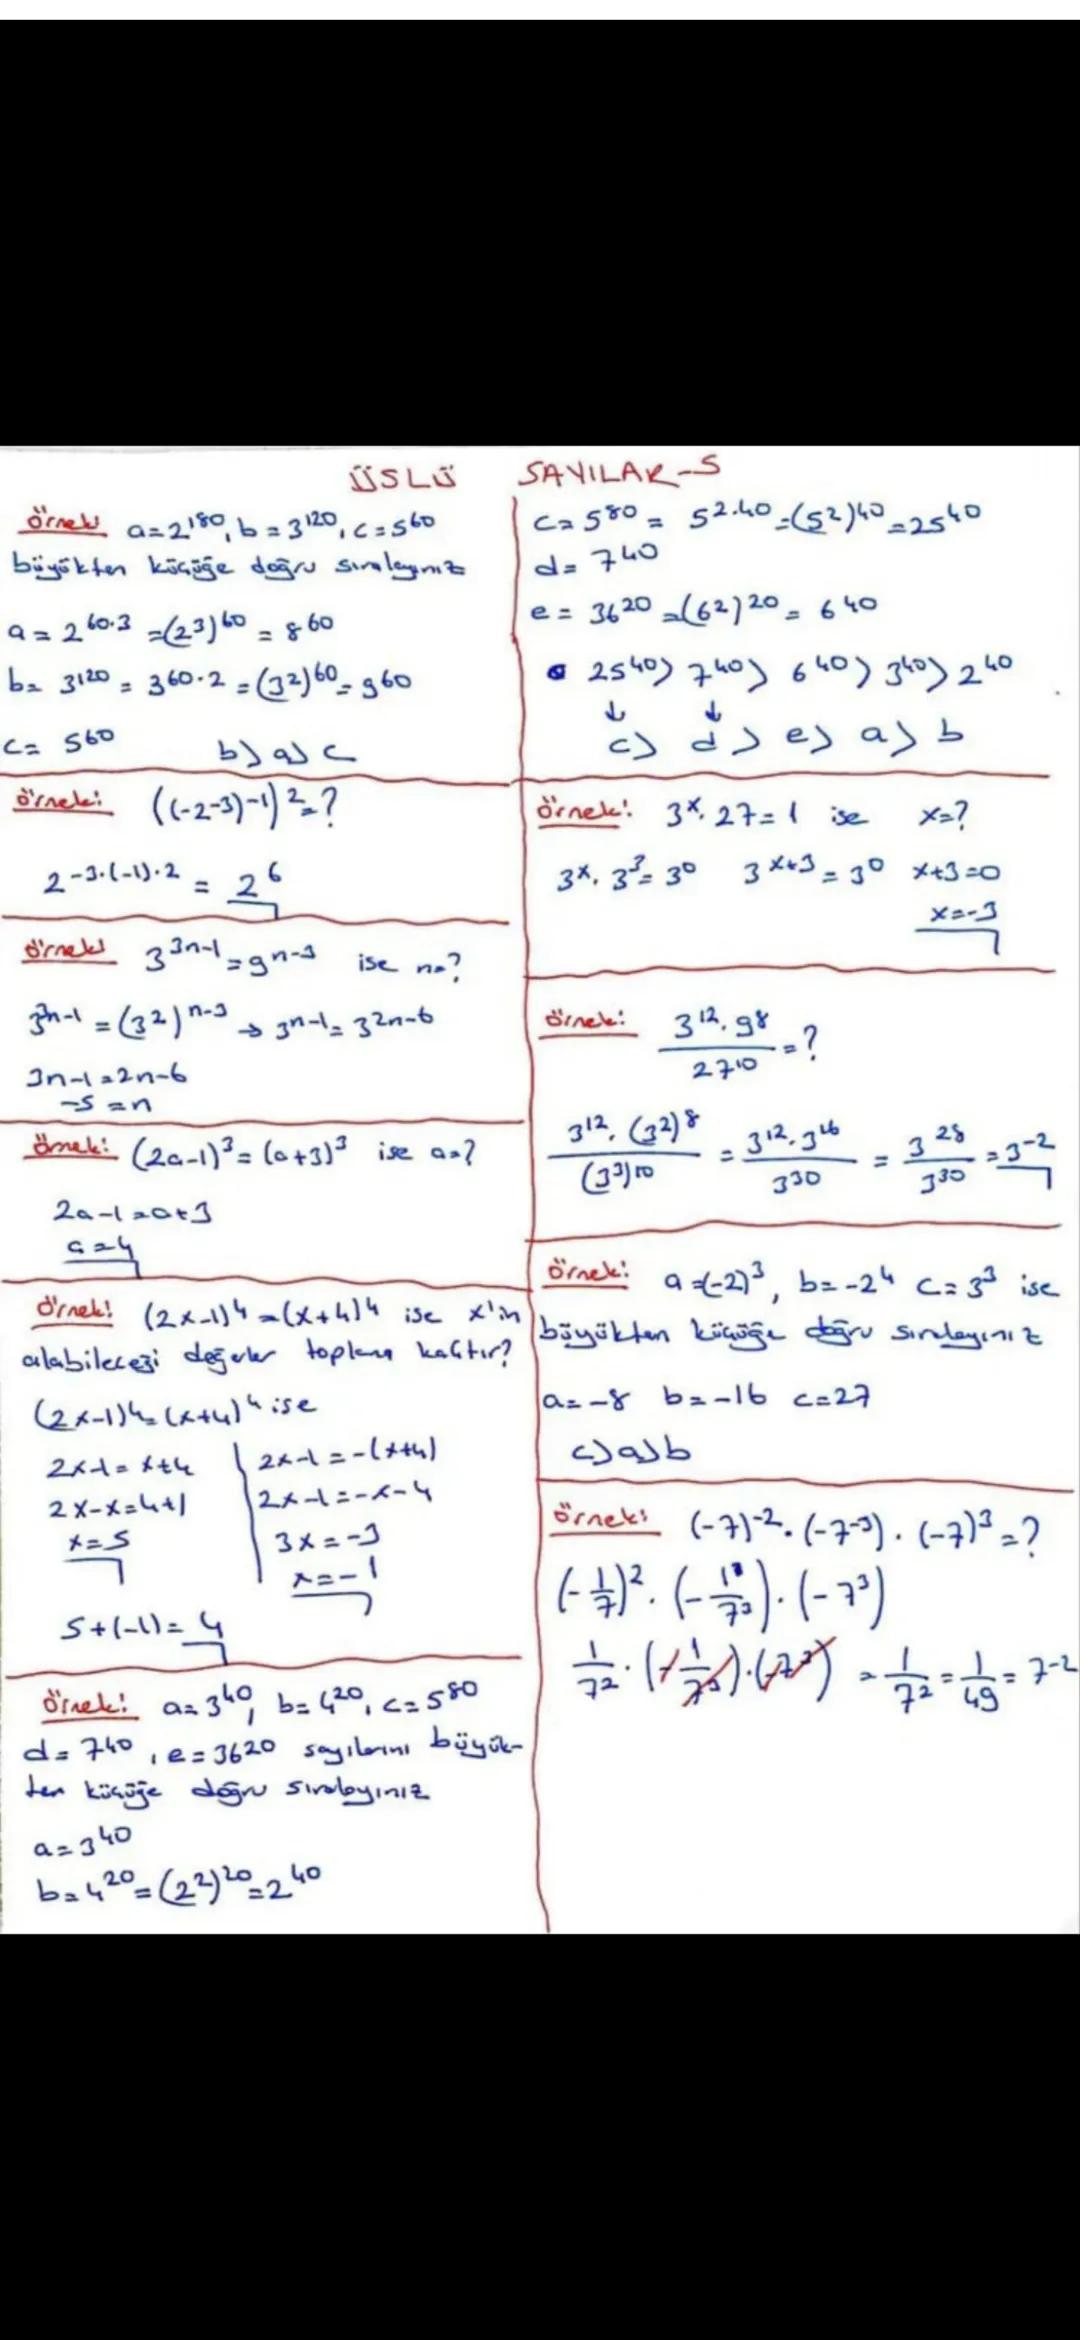 ÜSLÜ SAYILAR-5
Örnek: a=2^180, b=3^120, c=5^60
büyükten küçüğe doğru sıralayınız
a=2^60.3=(2^3)^60=8^60
b=3^120=3^60.2=(3^2)^60=9^60
c=5^60 b>a>c
Örnek: ((-2^-3)^-1)^2=?
2^-3.(-1).2=2^6
Örnek: 3^3n-1=9^n-3 ise n=?
3^3n-1=(3^2)^n-3→3^n-1=3^2n-6
3n-1=2n-6
-5=n
Örnek: (2a-1)^3=(a+3)^3 ise a=?
2a-1=a+3
a=4
Örnek: (2x-1)^4=(x+4)^4 ise x'in
alabileceği değerler toplamı kaçtır?
(2x-1)^4=(x+4)^4 ise
2x-1=x+4 2x-1=-(x+4)
2x-x=4+1 2x-1=-x-4
x=5 3x=-3
x=-1
5+(-1)=4
Örnek: a=3^40, b=4^20, c=5^80
d=7^40, e=36^20 sayılarını büyük-
ten küçüğe doğru sıralayınız
a=3^40
b=4^20=(2^2)^20=2^40
c=5^80=5^2.40=(5^2)^40=25^40
d=7^40
e=36^20=(6^2)^20=6^40
25^40>7^40>6^40>3^40>2^40
↓ ↓
c> d> e> a> b
Örnek: 3^x.27=1 ise x=?
3^x.3^3=3^0 3^x+3=3^0 x+3=0
x=-3
Örnek: 3^12.9^8/27^10=?
3^12.(3^2)^8/(3^3)^10=3^12.3^16/3^30=3^28/3^30=3^-2
Örnek: a=(-2)^3, b=-2^4 c=3^3 ise
büyükten küçüğe doğru sıralayınız
a=-8 b=-16 c=27
c>a>b
Örnek: (-7)^-2.(-7^-3).(-7)^3=?
(-1/7)^2.(-1/7^3).(-7^3)
1/7^2.(-1/7^3).(-7^3)=1/7^2=1/49=7^-2